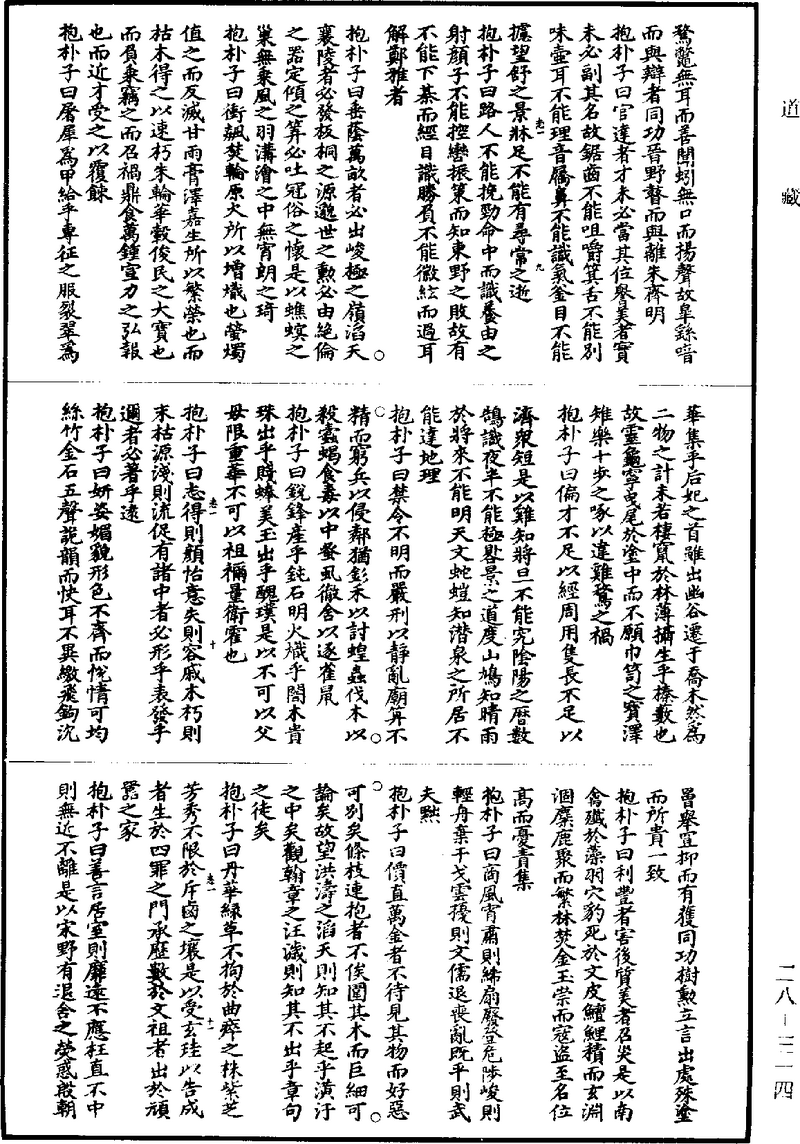 道藏
鶩鼈無耳而善聞蚓無口而揚聲故臯繇喑
而與辯者同功晉野瞽而與離朱齊明
抱朴子曰官達者才未必當其位譽美者實
未必副其名故鋸齒不能咀嚼箕舌不能別
味壺耳不能理音屩鼻不能識氣釜目不能
攄望舒之景牀足不能有尋常之逝
卷一
九
抱朴子曰路人不能挽勁命中而識養由之
射顔子不能控轡振策而知東野之敗故有
不能下棊而經目識勝負不能徽絃而過耳
解鄭雅者
抱朴子曰垂蔭萬畝者必出峻極之嶺滔天
襄陵者必發板桐之源邈世之勲必由絕倫
之器定傾之筭必吐冠俗之懷是以蟭螟之
巢無乘風之羽溝澮之中無宵朗之琦
抱朴子曰衝飆焚輪原火所以増熾也螢燭
值之而反滅甘雨膏澤嘉生所以繁榮也而
枯木得之以速朽朱輪華轂俊民之大寶也
而負乘竊之而召禍鼎食萬鍾宣力之弘報
也而近才受之以覆餗
抱朴子曰屠犀爲甲給乎專征之服裂翠爲
華集乎后妃之首雖出幽谷遷于喬木然爲
二物之計未若棲竄於林薄攝生乎榛藪也
故靈龜寧曳尾於塗中而不願巾笥之寶澤
雉樂十步之啄以違雞鶩之禍
抱朴子曰偏才不足以經周用隻長不足以
濟衆短是以雞知將旦不能究陰陽之曆數
鵠識夜半不能極晷景之道度山鳩知晴雨
於將來不能明天文蛇螘知潛泉之所居不
能達地理
抱朴子曰禁令不明而嚴刑以靜亂廟筭不
精而窮兵以侵鄰猶釤禾以討蝗蟲伐木以
殺蠹蝎食毒以中蚤虱徹舍以逐雀鼠
抱朴子曰銳鋒産乎鈍石明火熾乎闇木貴
珠出乎賤蚌美玉出乎醜璞是以不可以父
母限重華不可以祖禰量衛霍也
卷一
十
抱朴子曰志得則顔怡意失則容戚本朽則
末枯源淺則流促有諸中者必形乎表發乎
邇者必著乎遠
抱朴子曰妍姿媚貌形色不齊而悅情可均
絲竹金石五聲詭韻而快耳不異繳飛鉤沈
罾舉罝抑而有獲同功樹勲立言出處殊塗
而所貴一致
抱朴子曰利豐者害後質美者召災是以南
禽殲於藻羽穴豹死於文皮鱣鯉積而玄淵
涸麋鹿聚而繁林焚金玉崇而寇盜至名位
高而憂責集
抱朴子曰商風宵肅則絺扇廢登危陟峻則
輕舟棄干戈雲擾則文儒退喪亂既平則武
夫黜
抱朴子曰價直萬金者不待見其物而好惡
可別矣條枝連抱者不俟圍其木而巨細可
論矣故望洪濤之滔天則知其不起乎潢汙
之中矣觀翰章之汪濊則知其不出乎章句
之徒矣
抱朴子曰丹華綠草不拘於曲瘁之株紫芝
芳秀不限於斥鹵之壤是以受玄珪以告成
卷一
十一
者生於四罪之門承歷數於文祖者出於頑
嚚之家
抱朴子曰善言居室則靡遠不應枉直不中
則無近不離是以宋野有退舍之熒惑殷朝
二八-三一四